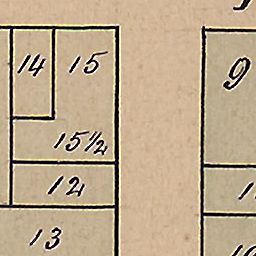 14
15
9
15½
12
13